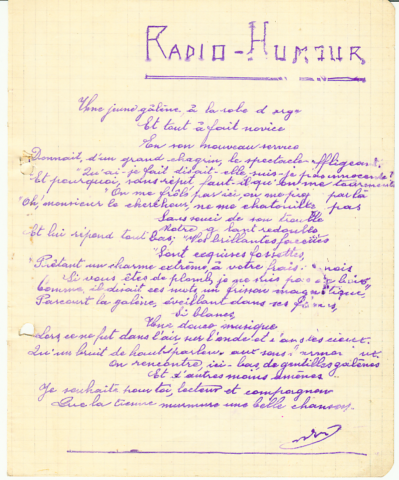 RADIO-HUMOUR
Une jeune galène à la robe d'argent
Et tout à fait novice
En son nouveau service
Donnait, d'un grand chagrin, le spectacle affligeant.
"Qu'ai-je fait disait-elle, suis-je pas innocente?
Et pourquoi, sans répit faut-il qu'on me tourmente
On me frôle par ici, on me par là
Oh, monsieur le chercheur, ne me chatouillez pas
Sans souci de son trouble
Notre galant redouble
Et lui répond tout bas; "Vos brillantes facettes
"Sont exquises fossettes,
"Prêtant un charme extrême à votre frais minois
Si vous êtes de plomb, je ne suis pas de bois
Comme il disait ces mots un frisson magnétique
Parcourt la galène, éveillant dans ses
Si blancs
Une douce musique
Lors ce ne fut dans l'air sur l'onde et dans les cieux
Qu'un bruit de haut-parleur
On rencontre, ici-bas, de gentilles galènes
Et d'autres moins amènes
Je souhaite pour toi, lecteur et compagnon
Que la tienne murmure une belle chanson.